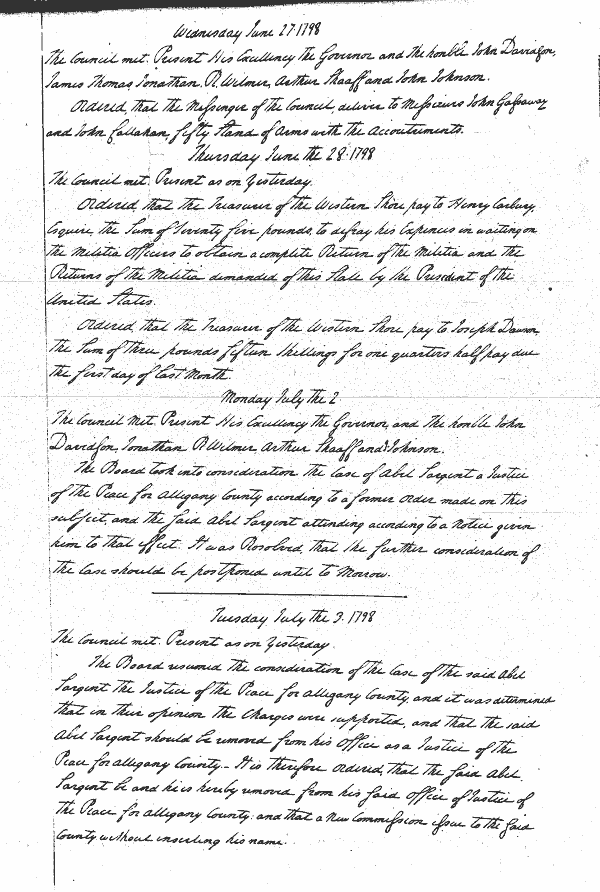 Wednesday June 27. 1798
The Council met. Present His Excellency the Govrnor and the honble John Davidson,
James Thomas, Jonathan R. Wilmer, Arthur Shaaff and John Johnson.
Ordered, that the Messenger of the Council, deliver to Messieurs John Gassaway
and John Callahan, fifty stand of Arms with the Accoutrements.
Thursday June the 28. 1798
The Council met. Present as on Yesterday.
Ordered that the Treasurer of the Western Shore pay to Henry Carbury,
Esquire, the Sum of Seventy five pounds to defray his Expences in waiting on
the Militia Officers to obtain a complete Return of the Militia and the
Returns of the Militia demanded of this State by the President of the
United States.
Ordered that the Treasurer of the Western Shore pay to Joseph
the Sum of three pounds fifteen Shillings for one quarters half pay due
the first day of last Month.
Monday July the 2
The Council Met. Present His Excellency the Governor, and the honble John
Davidson, Jonathan R. Wilmer, Arthur Shaaff and J Johnson.
The Board took into consideration the Case of Abel Sargent a Justice
of the Peace for Allegany County according to a former Order made on this
subject, and the said Abel Sargent attending acording to a Notice given
him to that effect. It was Resolved, that the further consideration of
the Case should be postponed until to Morrow.
Tuesday July the 3. 1798
The Council met. Present as on Yesterday.
The Board resumed the consideration of the Case of the said Abel
Sargent the Justice of the Peace for Allegany County, and it was determined
that in their opinion the Charges were supported, and that the said
Abel Sargent should be removed from his Office as a Justice of the
Peace for Allegany County - It is therefore Ordered, that the said Abel
Sargent be and he is hereby removed from his said Office of Justice of
the Peace for Allegany County: and that a New Commission issue to the said
County without inserting his name.